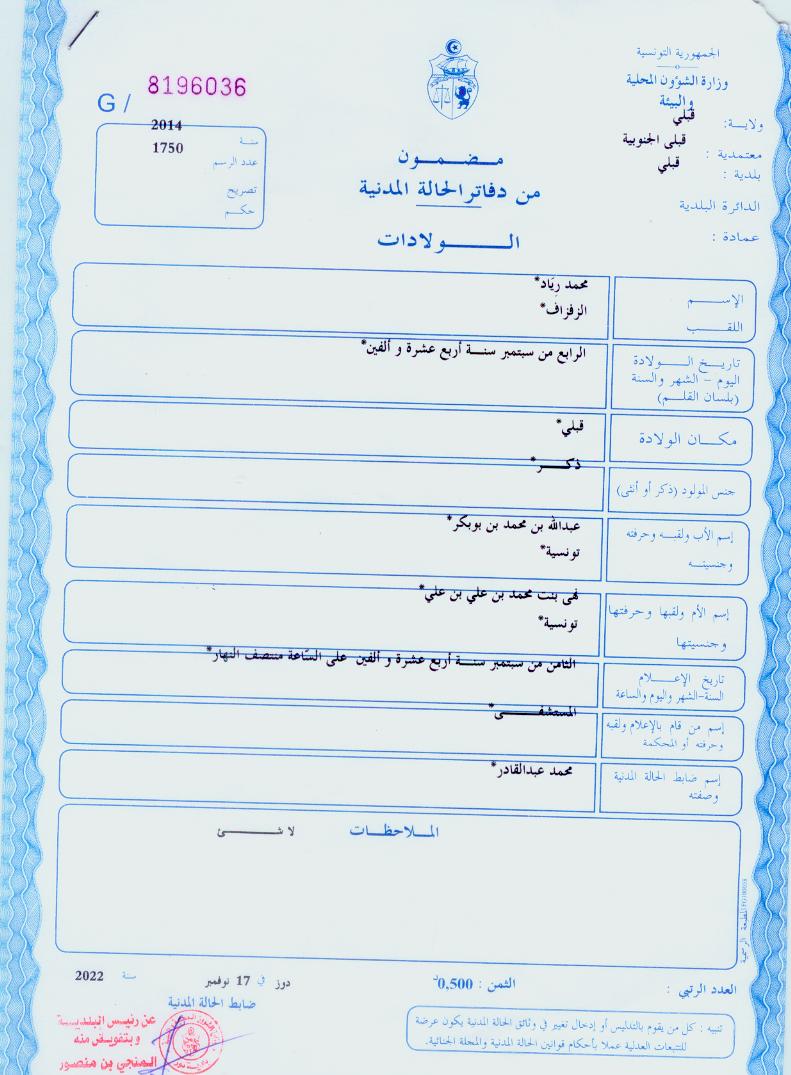 الجمهورية التونسية
وزارة الشؤون المحلية
والبيئة
ولايـــة: قبلي
معتمدية : قبلى الجنوبية
بلدية : قبلي
الدائرة البلدية
عمادة :
G / 8196036
سنة 2014
عدد الرسم 1750
تصريح
حكم
مـضـمـون
من دفاتر الحالة المدنية
الـولادات
الإســم محمد رياد*
اللقـب الزفزاف*
تاريـخ الـولادة الرابع من سبتمبر سنـة أربع عشرة و ألفين*
اليوم - الشهر والسنة
(بلسان القلـم)
مكـان الولادة قبلي*
جنس المولود (ذكر أو أنثى) ذكـر*
إسم الأب ولقبـه وحرفته عبدالله بن محمد بن بوبكر*
وجنسيتـه تونسية*
إسم الأم ولقبها وحرفتها نهى بنت محمد بن علي بن علي*
وجنسيتها تونسية*
تاريخ الإعـلام الثامن من سبتمبر سنـة أربع عشرة و ألفين على السّاعة منتصف النهار*
السنة-الشهر واليوم والساعة
إسم من قام بالإعلام ولقبه المستشفـى*
وحرفته أو المحكمة
إسم ضابط الحالة المدنية محمد عبدالقادر*
وصفته
الملاحظات لا شـئ
المطبعة الرسمية
العدد الرتبي :
الثمن : 0,500د
دوز في 17 نوفمبر سنة 2022
ضابط الحالة المدنية
تنبيه : كل من يقوم بالتدليس أو إدخال تغيير في وثائق الحالة المدنية يكون عرضة
للتتبعات العدلية عملا بأحكام قوانين الحالة المدنية والمجلة الجنائية.
عن رئيس البلديـة
و بتفويض منه
المنجي بن منصور